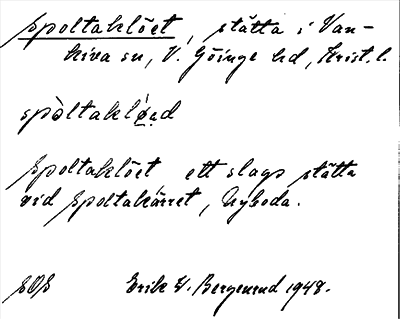 Spoltaklöet, stätta i Van-
kiva sn, V. Göinge hd, Krist. l.
spòltaklø̀əd
Spoltaklöet ett slags stätta
vid Spoltakärret, Nyboda.
SOS Erik W. Bergenrud 1948.